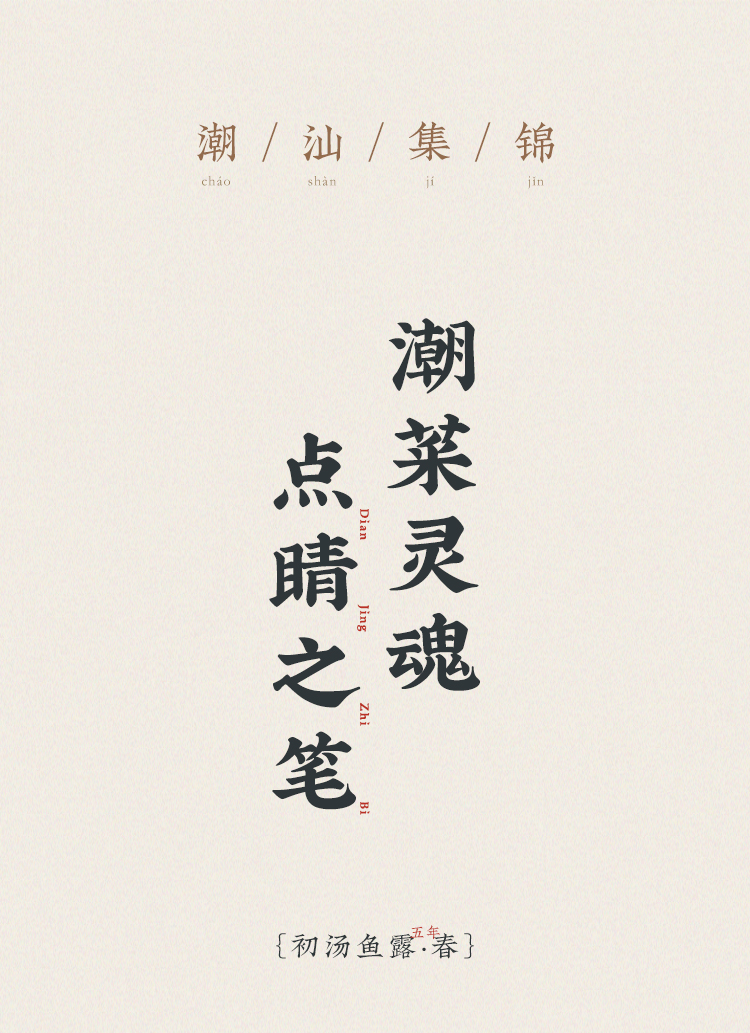 潮/汕/集/锦
cháo shàn jí jǐn
潮菜灵魂
点睛之笔
Dian Jing Zhi Bi
五年
{初汤鱼露·春}